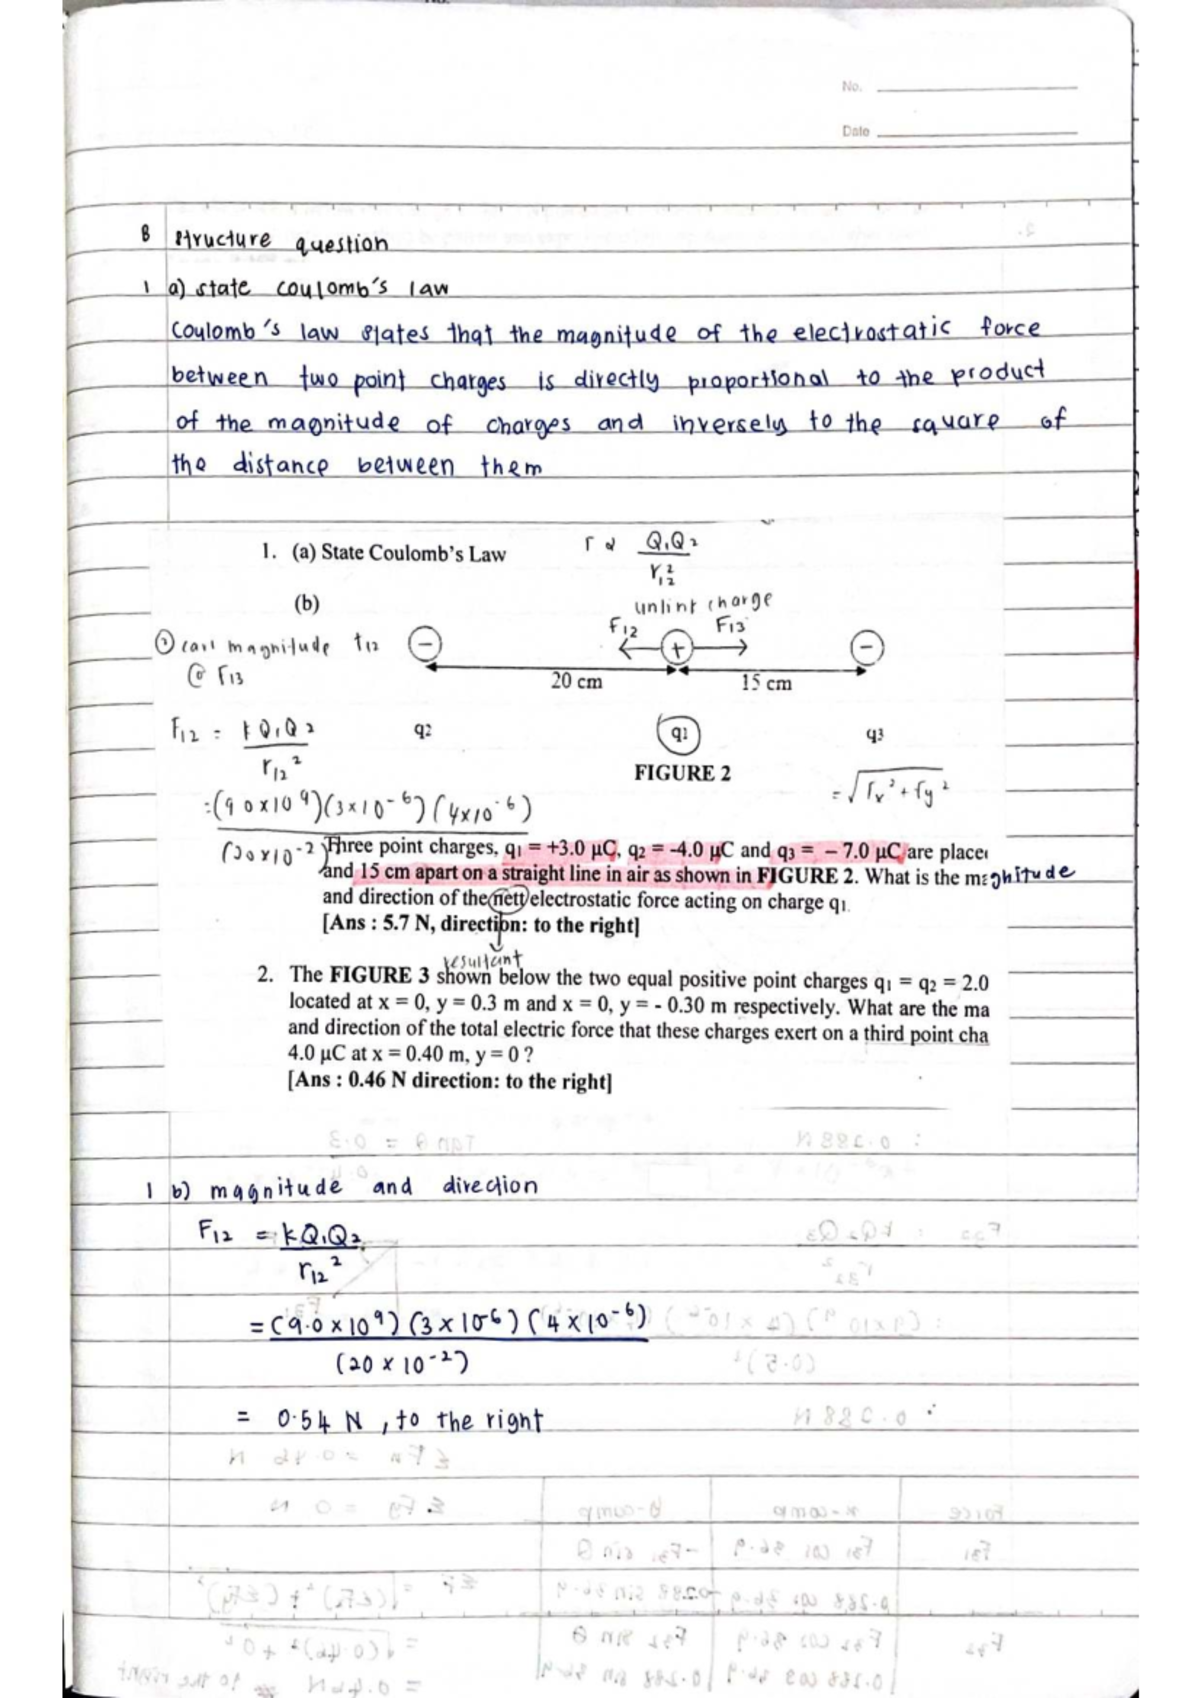 No.
Date
B structure question
1 a) state coulomb's law
Coulomb's law states that the magnitude of the electrostatic force
between two point charges is directly proportional to the product
of the magnitude of charges and inversely to the square of
the distance between them
1. (a) State Coulomb's Law
F α Q1Q2
r12²
(b)
unlint charge
F12 F13
magnitude F12
@ F13
− + −
20 cm 15 cm
F12 = kQ1Q2
r12²
q2 q1 q3
FIGURE 2
= √Fx² + Fy²
= (9.0x10⁹)(3x10⁻⁶)(4x10⁻⁶)
(20x10⁻²)
Three point charges, q1 = +3.0 μC, q2 = -4.0 μC and q3 = – 7.0 μC are place
and 15 cm apart on a straight line in air as shown in FIGURE 2. What is the magnitude
and direction of the nett electrostatic force acting on charge q1.
[Ans : 5.7 N, direction: to the right]
resultant
2. The FIGURE 3 shown below the two equal positive point charges q1 = q2 = 2.0
located at x = 0, y = 0.3 m and x = 0, y = - 0.30 m respectively. What are the ma
and direction of the total electric force that these charges exert on a third point cha
4.0 μC at x = 0.40 m, y = 0 ?
[Ans : 0.46 N direction: to the right]
1 b) magnitude and direction
F12 = kQ1Q2
r12²
= (9.0 x 10⁹) (3 x 10⁻⁶) (4 x 10⁻⁶)
(20 x 10⁻²)
= 0.54 N , to the right